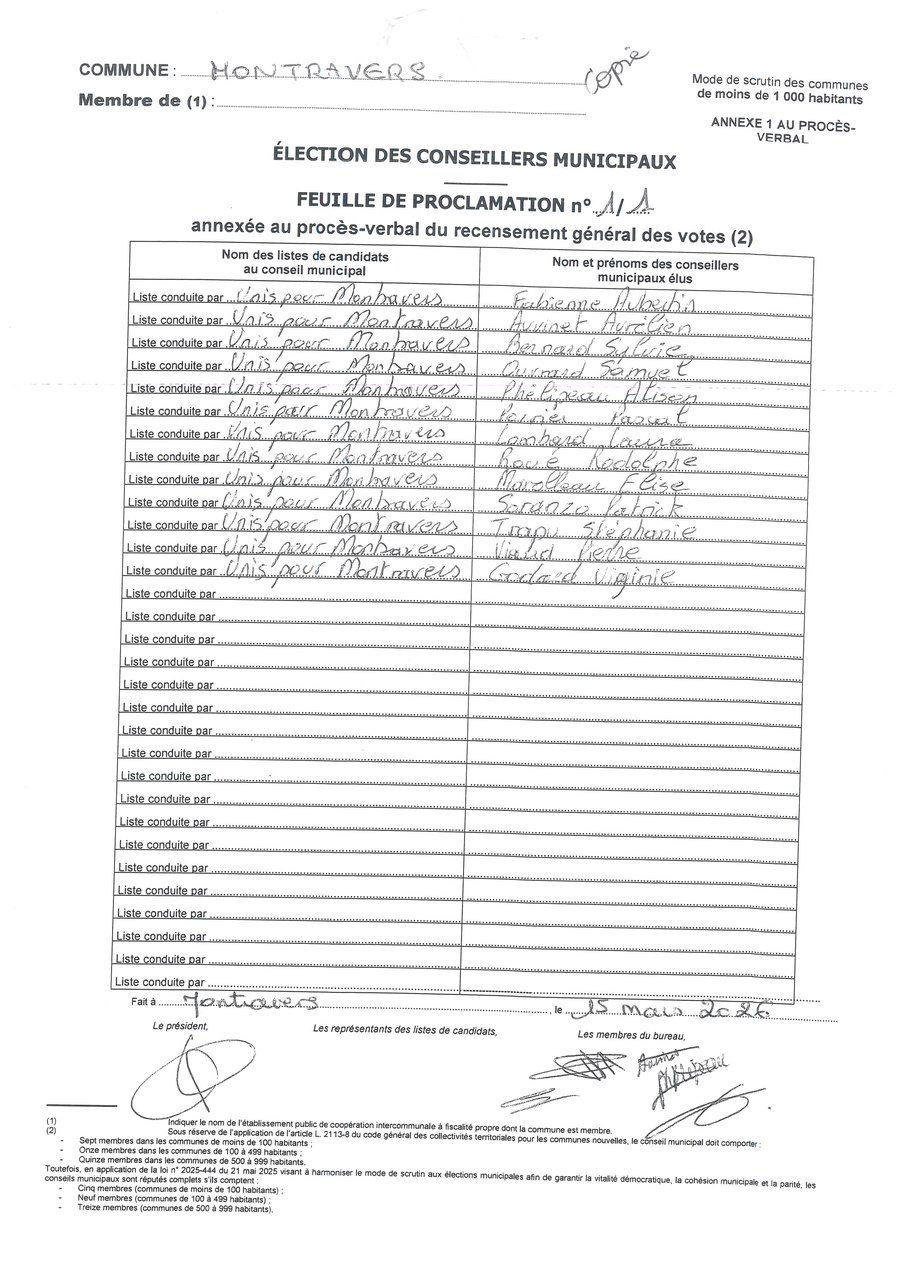 COMMUNE : MONTRAVERS
Copie
Mode de scrutin des communes
de moins de 1 000 habitants
Membre de (1) :
ANNEXE 1 AU PROCÈS-
VERBAL
ÉLECTION DES CONSEILLERS MUNICIPAUX
FEUILLE DE PROCLAMATION n° 1/1
annexée au procès-verbal du recensement général des votes (2)
Nom des listes de candidats
au conseil municipal
Nom et prénoms des conseillers
municipaux élus
Liste conduite par Unis pour Montravers Fabienne
Liste conduite par Unis pour Montravers Auvinet Aurélien
Liste conduite par Unis pour Montravers Bernard Sylvie
Liste conduite par Unis pour Montravers Samuel
Liste conduite par Unis pour Montravers Phelipeau Alison
Liste conduite par Unis pour Montravers Pascal
Liste conduite par Unis pour Montravers Lombard Laura
Liste conduite par Unis pour Montravers Roué Rodolphe
Liste conduite par Unis pour Montravers Marolleau Elise
Liste conduite par Unis pour Montravers Soranzo Patrick
Liste conduite par Unis pour Montravers Trapu Stéphanie
Liste conduite par Unis pour Montravers Viaud Pierre
Liste conduite par Unis pour Montravers Godard Virginie
Liste conduite par
Liste conduite par
Liste conduite par
Liste conduite par
Liste conduite par
Liste conduite par
Liste conduite par
Liste conduite par
Liste conduite par
Liste conduite par
Liste conduite par
Liste conduite par
Liste conduite par
Liste conduite par
Liste conduite par
Liste conduite par
Liste conduite par
Liste conduite par
Fait à Montravers, le 15 mars 2026
Le président,
Les représentants des listes de candidats,
Les membres du bureau,
(1) Indiquer le nom de l'établissement public de coopération intercommunale à fiscalité propre dont la commune est membre.
(2) Sous réserve de l'application de l'article L. 2113-8 du code général des collectivités territoriales pour les communes nouvelles, le conseil municipal doit comporter :
- Sept membres dans les communes de moins de 100 habitants ;
- Onze membres dans les communes de 100 à 499 habitants ;
- Quinze membres dans les communes de 500 à 999 habitants,
Toutefois, en application de la loi n° 2025-444 du 21 mai 2025 visant à harmoniser le mode de scrutin aux élections municipales afin de garantir la vitalité démocratique, la cohésion municipale et la parité, les
conseils municipaux sont réputés complets s'ils comptent :
- Cinq membres (communes de moins de 100 habitants) ;
- Neuf membres (communes de 100 à 499 habitants) ;
- Treize membres (communes de 500 à 999 habitants).